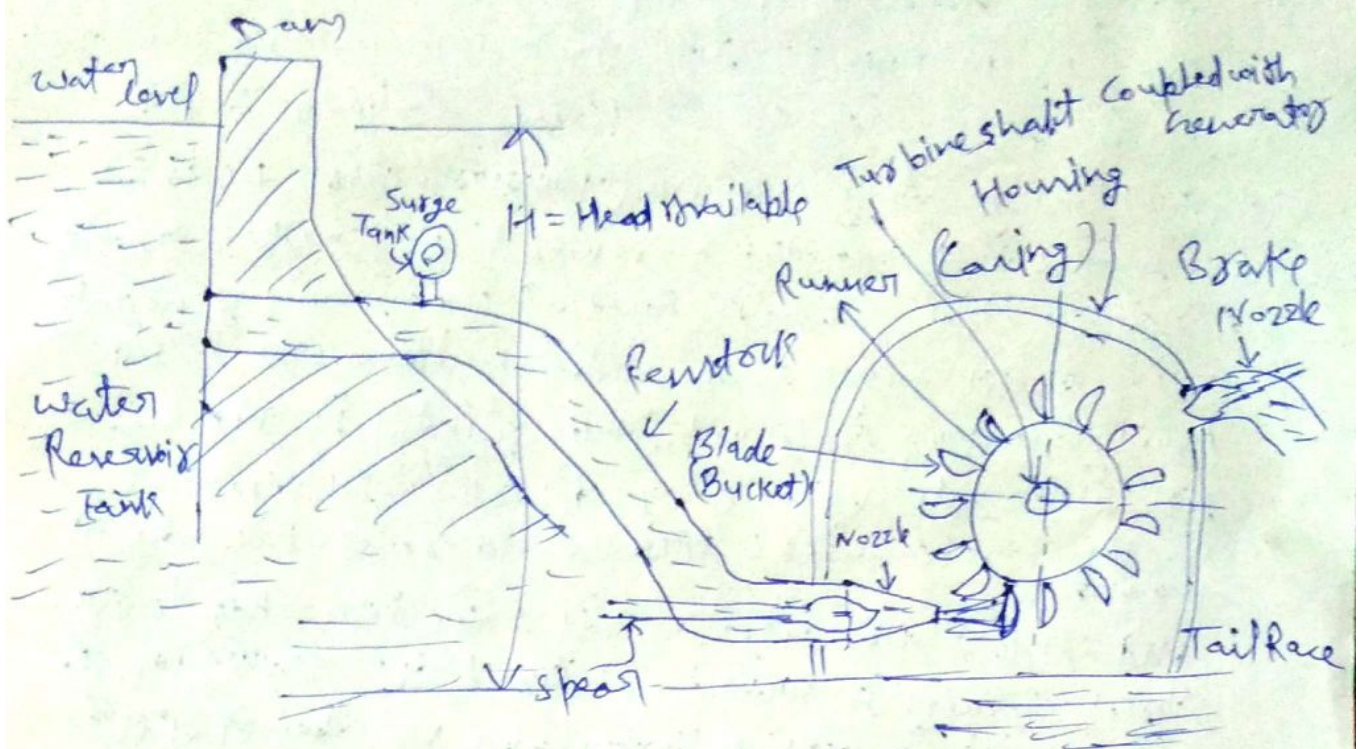 Dam
Water
level
Surge
Tank
H = Head Available
Turbine shaft Coupled with
Generator
Housing
(Casing)
Runner
Brake
Nozzle
Penstock
Water
Reservoir
Tank
Blade
(Bucket)
Nozzle
Spear
Tail Race